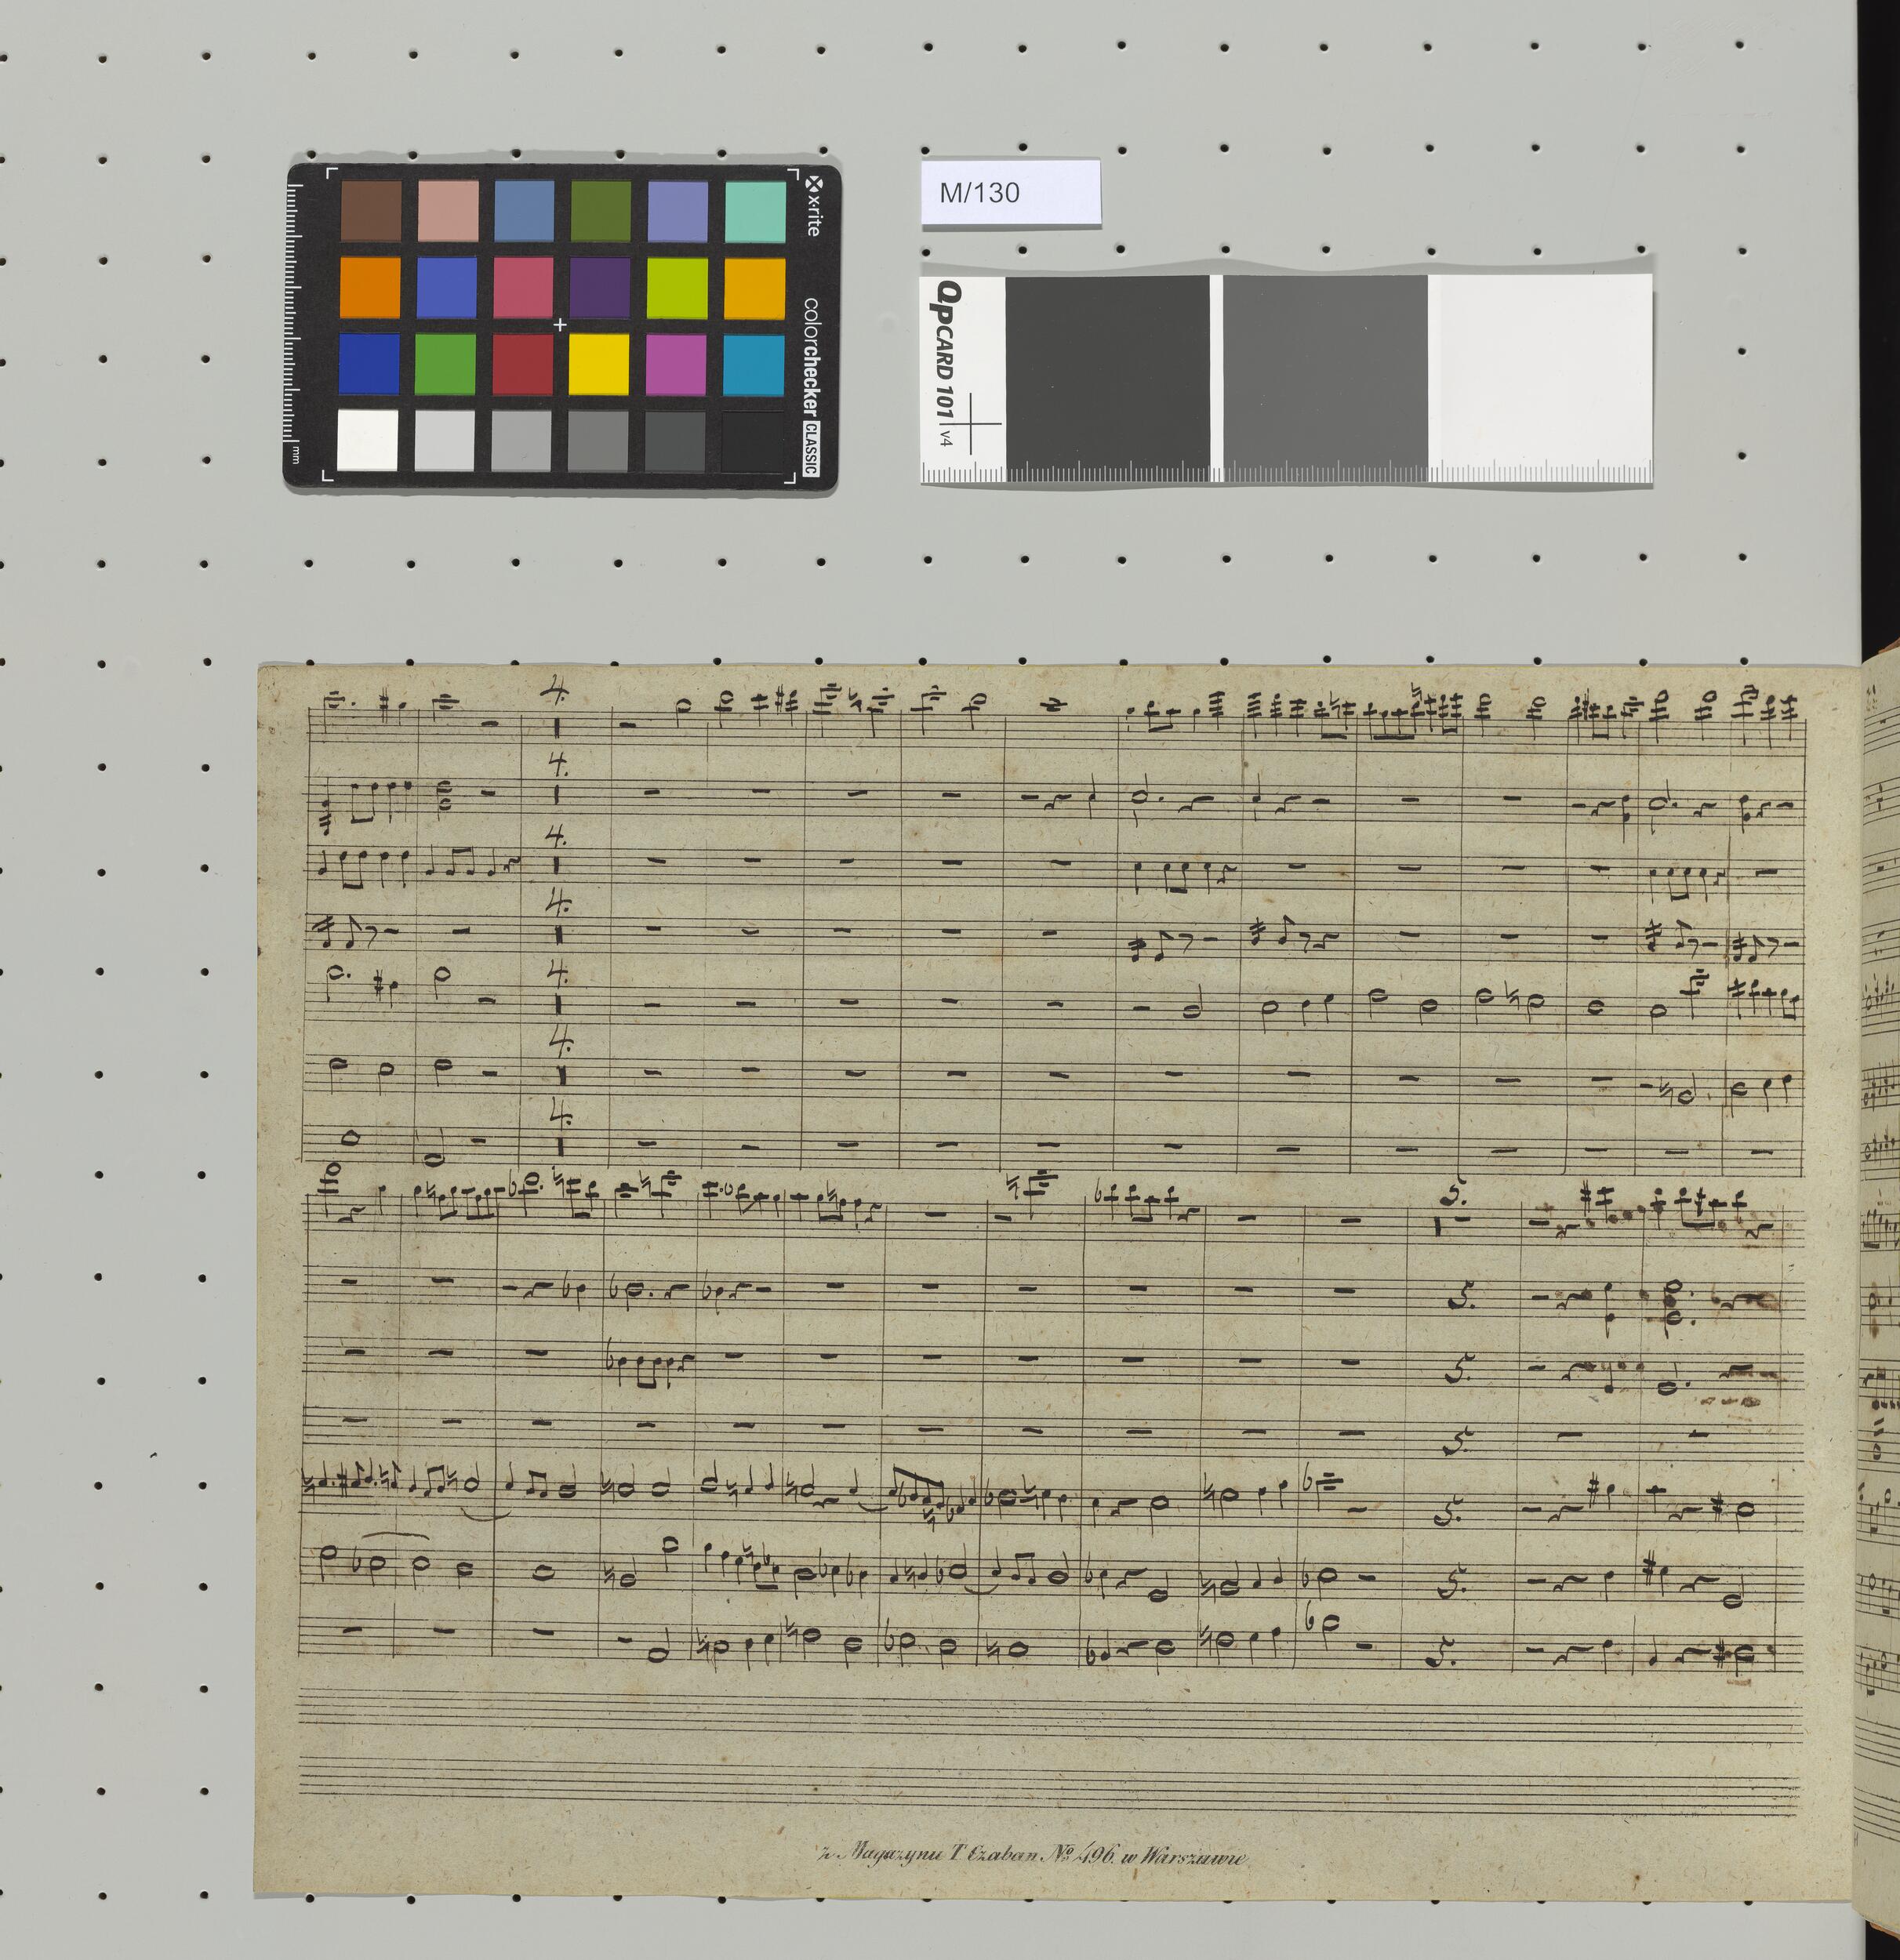 x·rite
colorchecker CLASSIC
mm
M/130
QPCARD 101 v4
4.
4.
4.
4.
4.
4.
4.
5.
5.
5.
5.
5.
5.
5.
z Magazynu T Czaban No 496. w Warszawie